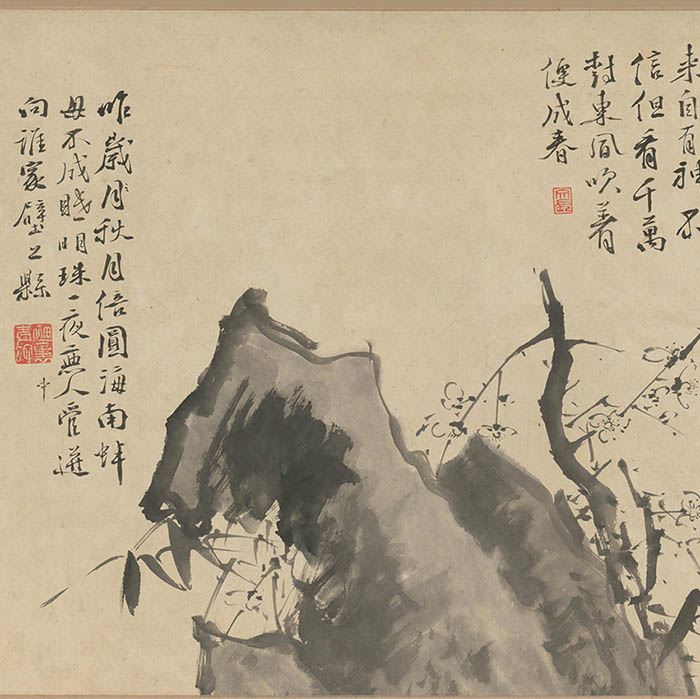 来自有神不
信但看千萬
樹東風吹著
便成春
昨歲月秋月倍圓海南蚌
母不成眠明珠一夜無人管迸
向誰家壁上縣
中